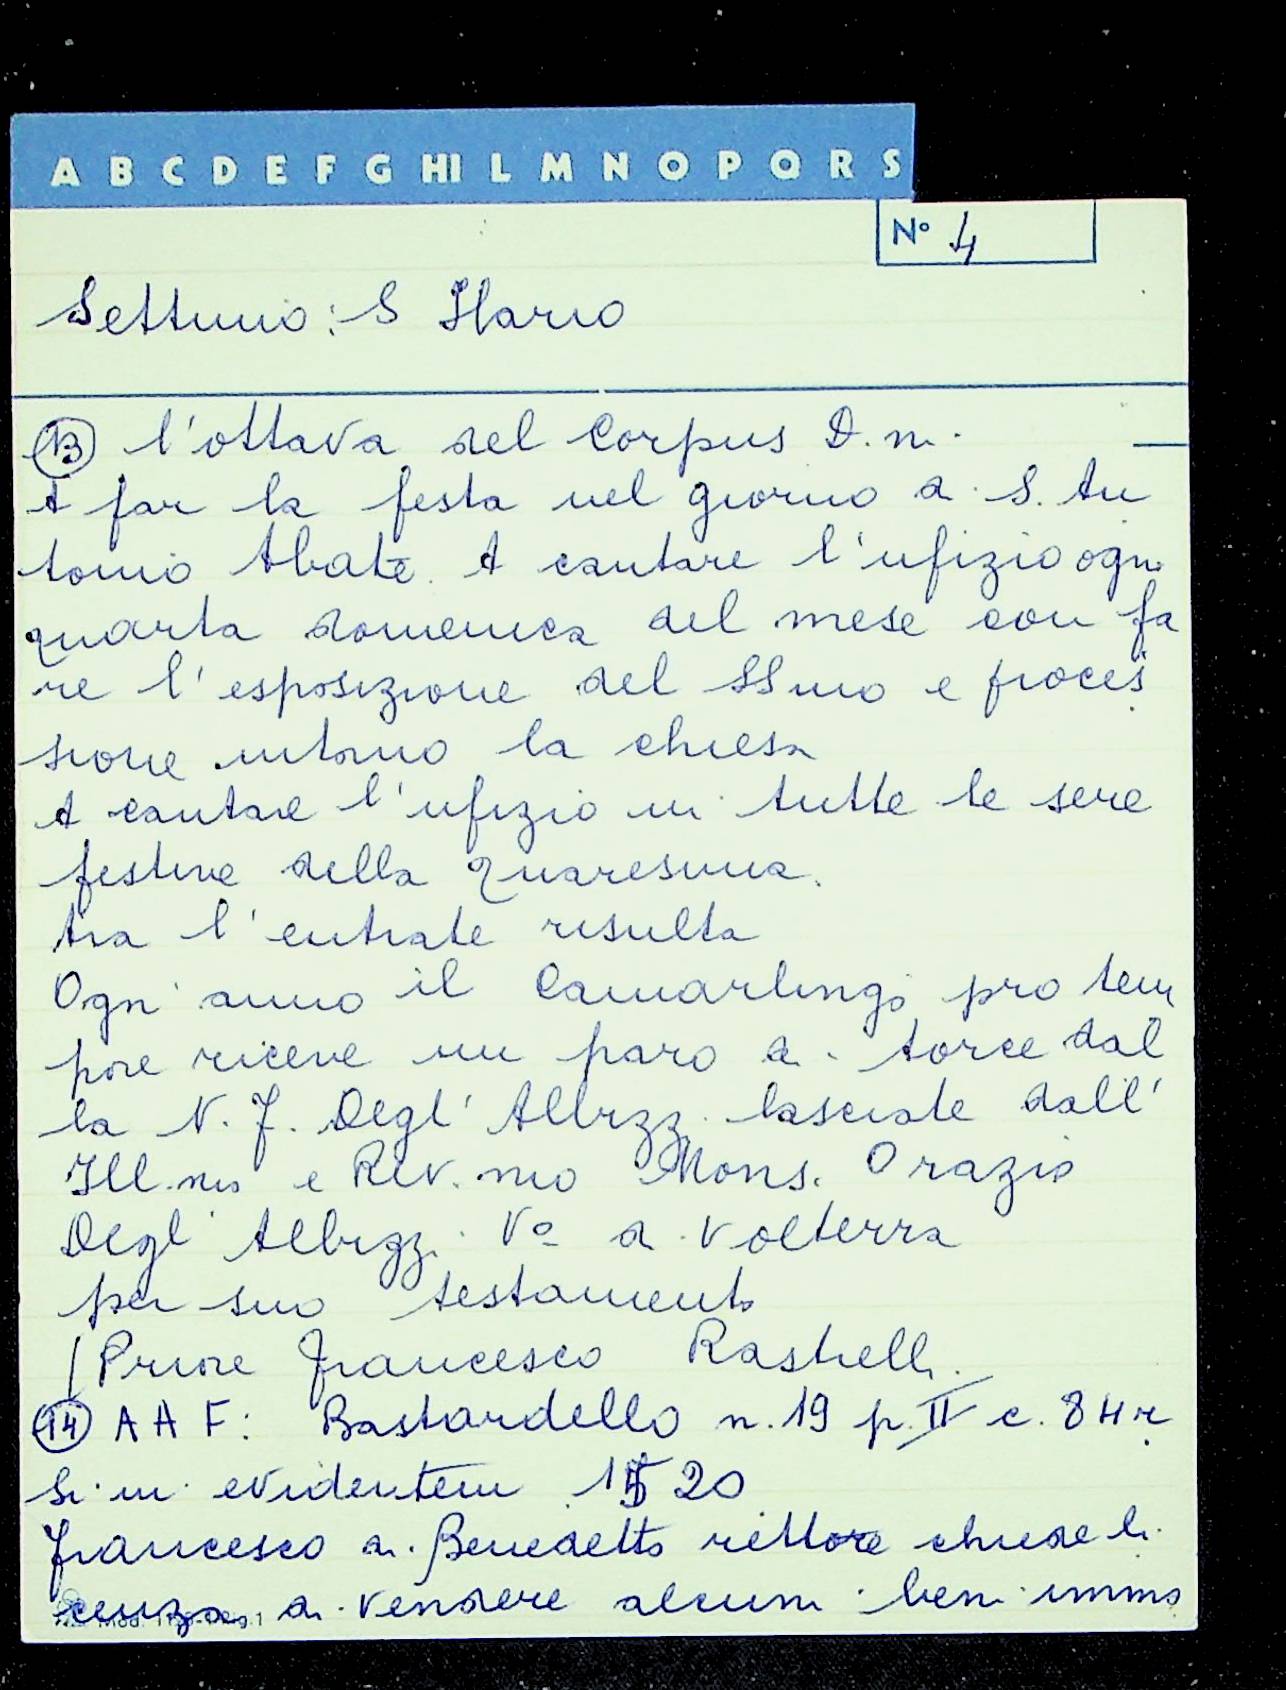 A B C D E F G HI L M N O P Q R S
N° 4
Settimo: S Ilario
13 l'ottava del Corpus D.ni.
A far la festa nel giorno di S. An
tonio Abate. A cantare l'ufizio ogni
quarta domenica del mese con fa
re l'esposizione del SSmo e proces
sione intorno la chiesa
A cantare l'ufizio in tutte le sere
festive della quaresima.
tra l'entrate risulta
Ogni anno il Camarlingo pro tem
pore riceve un paro di torce dal
la N. F. Degl' Albizzi lasciate dall'
Ill.mo e Rev.mo Mons. Orazio
Degl' Albizzi Vo di Volterra
per suo testamento
/Priore Francesco Rastrelli.
14 A A F: Bastardello n. 19 p. II c. 84r
Si in evidentem 1520
Francesco di Benedetto rettore chiede li
cenza di vendere alcuni beni immo